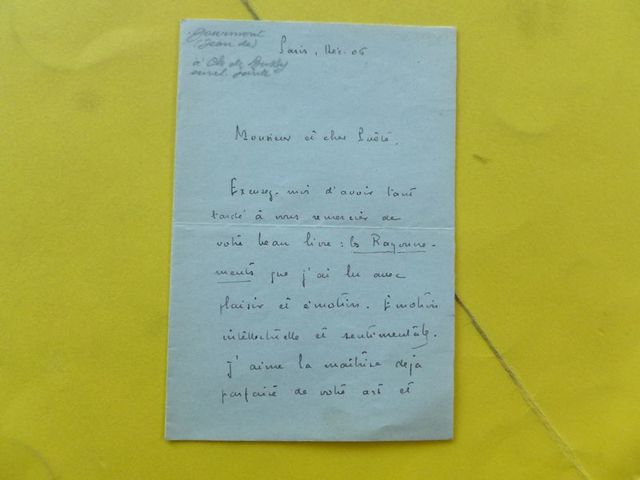 Gourmont
(Jean de)
à Ch. de
envel. jointe
Paris, Déc. 06
Monsieur et cher Poète,
Excusez-moi d'avoir tant
tardé à vous remercier de
votre beau livre : les Rayonne-
ments que j'ai lu avec
plaisir et émotion. Émotion
intellectuelle et sentimentale.
J'aime la maîtrise déjà
parfaite de votre art et